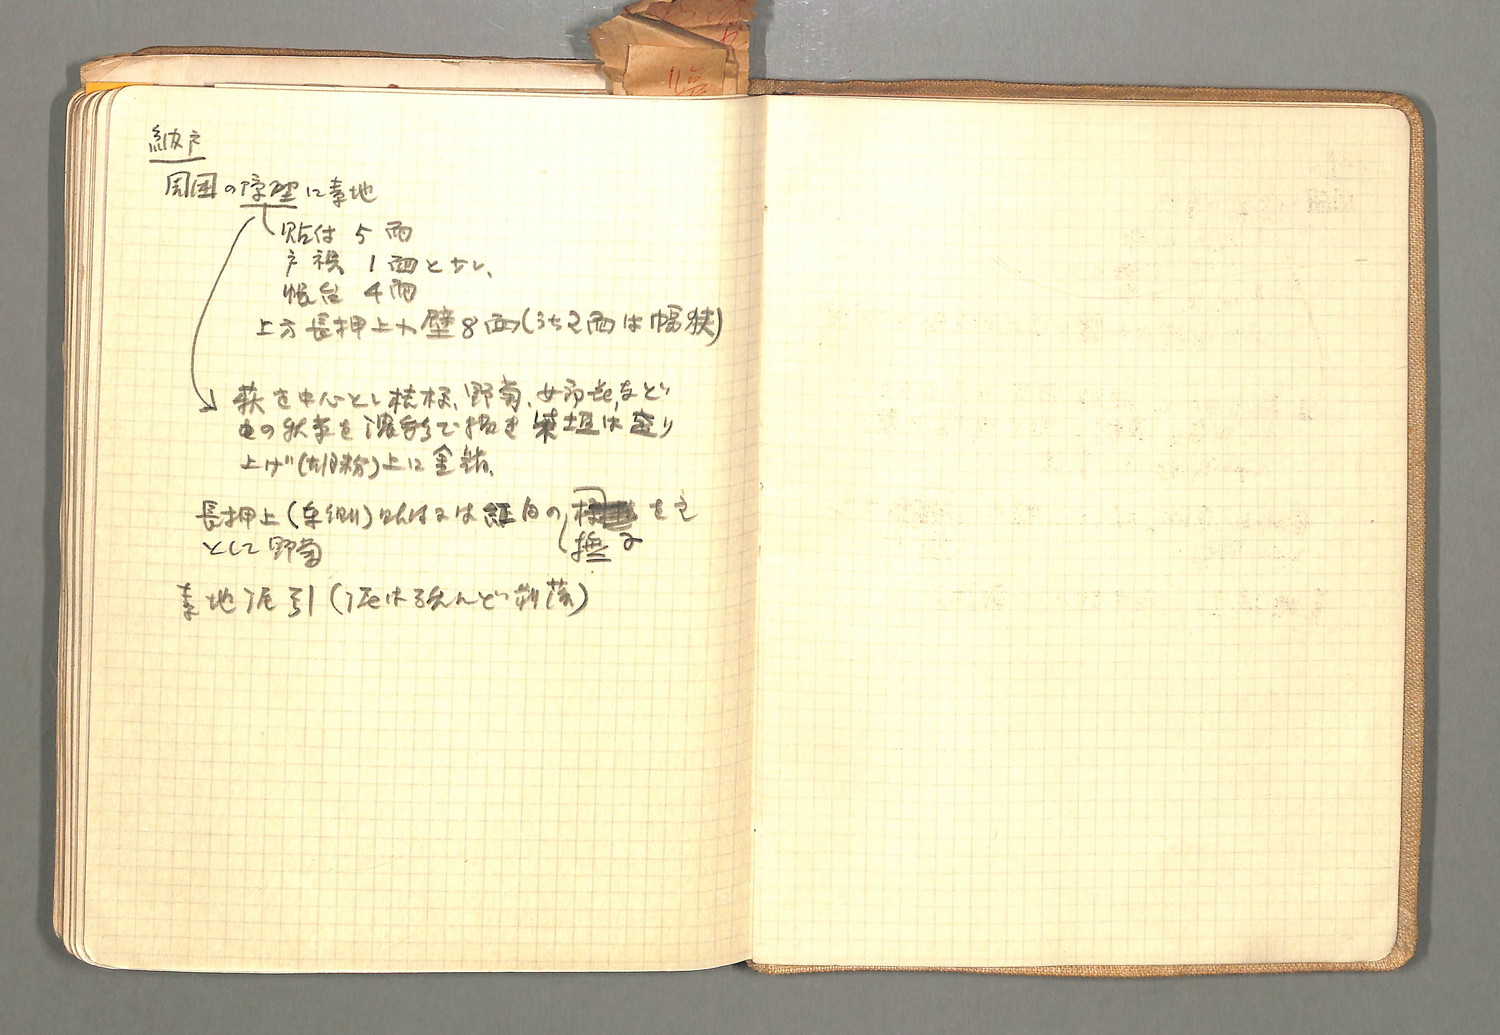 納戸
周囲の障壁に素地
貼付 5面
戸襖 1面となし、
帳台 4面
上方長押上小壁8面(うち2面は幅狭)
萩を中心とし桔梗、野菊、女郎花などの秋草を濃彩で描き築垣は盛り
上げ(胡粉)上に金箔、
長押上(東側)は紅白の撫子を主
として野菊
素地泥引(泥は殆んど剥落)